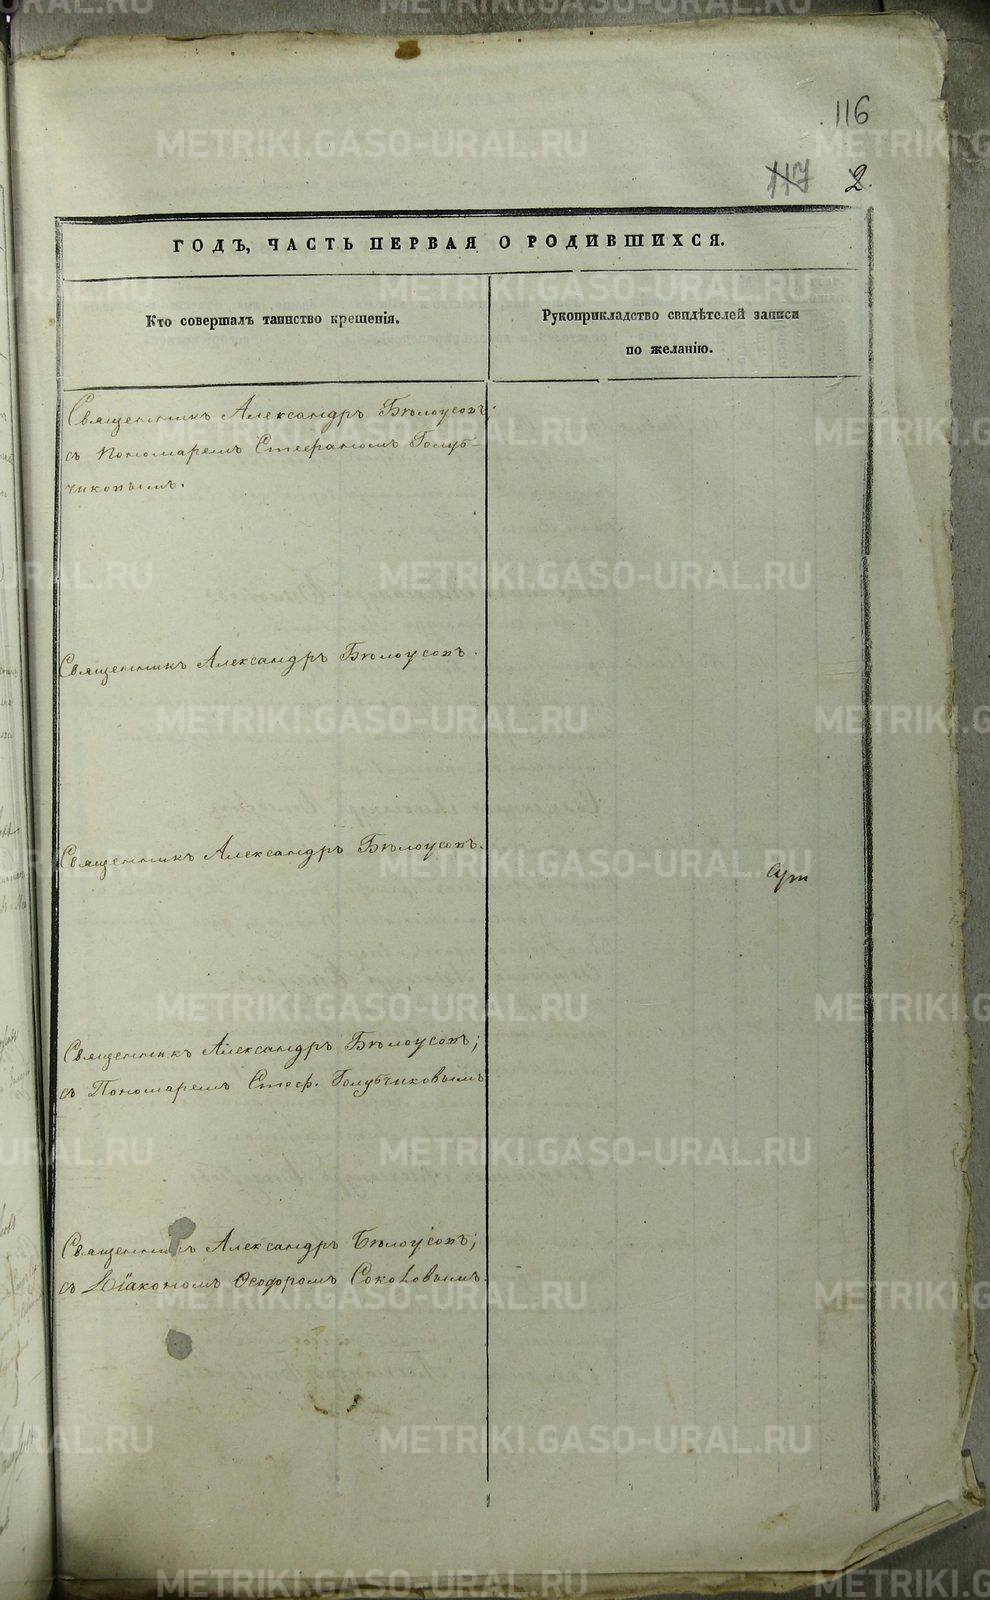 116
117 2.
ГОДЪ, ЧАСТЬ ПЕРВАЯ О РОДИВШИХСЯ.
Кто совершалъ таинство крещенія.
Рукоприкладство свидѣтелей записи
по желанію.
Священникъ Александръ Бѣлоусовъ
съ пономаремъ Стефаномъ Голуб-
чиковымъ.
Священникъ Александръ Бѣлоусовъ.
Священникъ Александръ Бѣлоусовъ.
Священникъ Александръ Бѣлоусовъ;
съ Пономаремъ Стеф. Голубчиковымъ
Священникъ Александръ Бѣлоусовъ;
съ Діакономъ Ѳеодоромъ Соколовымъ
METRIKI.GASO-URAL.RU